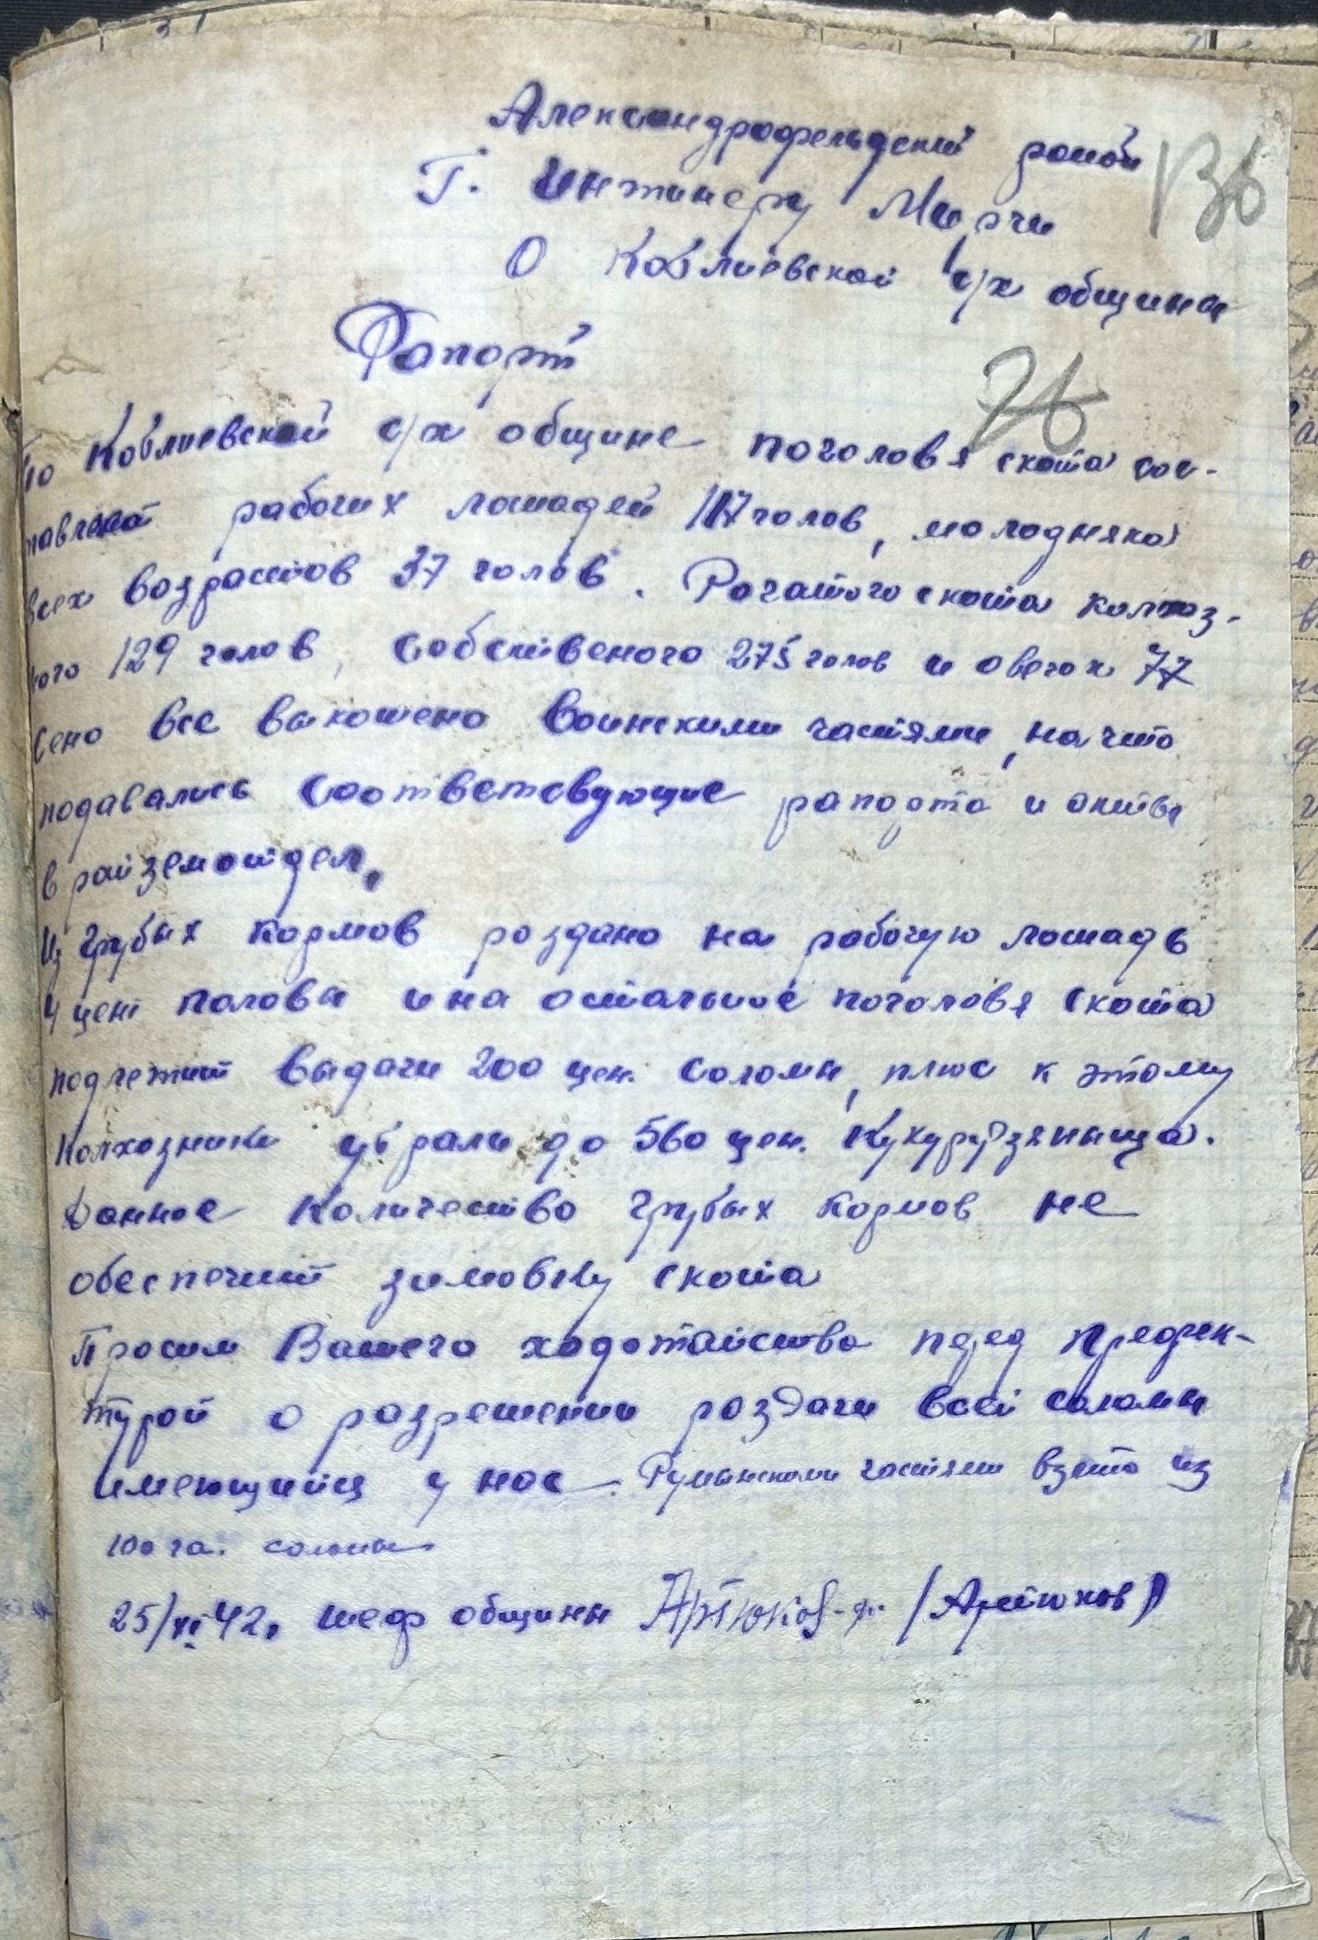 Александрофельдский район
136
Г. Инжинеру Мирчи
О Коблиевской с/х общины
Рапорт
26
По Коблиевской с/х общине поголовя скота сос-
тавляет рабочих лошадей 117 голов, молодняка
всех возрастов 37 голов. Рогатого скота колхоз-
ного 129 голов, собственого 275 голов и овечок 77
Сено все выкошено воинскими частями, на что
подавались соответсвующие рапорта и акты
в райземотдел.
Из грубых кормов роздано на рабочую лошадь
4 цен половы и на остальное поголовя скота
подлежит выдачи 200 цен. соломы, плюс к этому
колхозники убрали до 560 цен. кукурузяныща.
Данное количество грубых кормов не
обеспечит зимовку скота
Просим Вашего ходотайства перед префек-
турой о разрешении роздачи всей соломы
имеющийся у нас. Румынскими частями взято из
100 га. соломы
25/XI 42. шеф общины Артюков (Артюков)